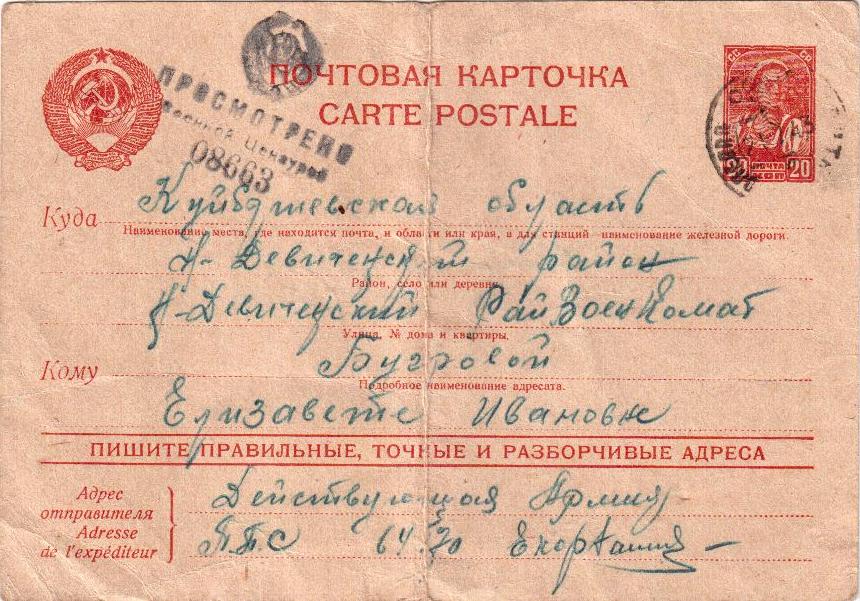 ПОЧТОВАЯ КАРТОЧКА
CARTE POSTALE
СС СР
ПОЧТА
20 КОП
ПРОСМОТРЕНО
Военной Цензурой
08663
Куда Куйбышевская область
Наименование места, где находится почта, и области или края, а для станций наименование железной дороги.
Н-Девиченский район
Район, село или деревня.
Н-Девиченский РайВоенКомат
Улица, № дома и квартиры.
Кому Бугровой
Подробное наименование адресата.
Елизавете Ивановне
ПИШИТЕ ПРАВИЛЬНЫЕ, ТОЧНЫЕ И РАЗБОРЧИВЫЕ АДРЕСА
Адрес отправителя
Adresse de l'expéditeur
Действующая Армия
ППС 64/70